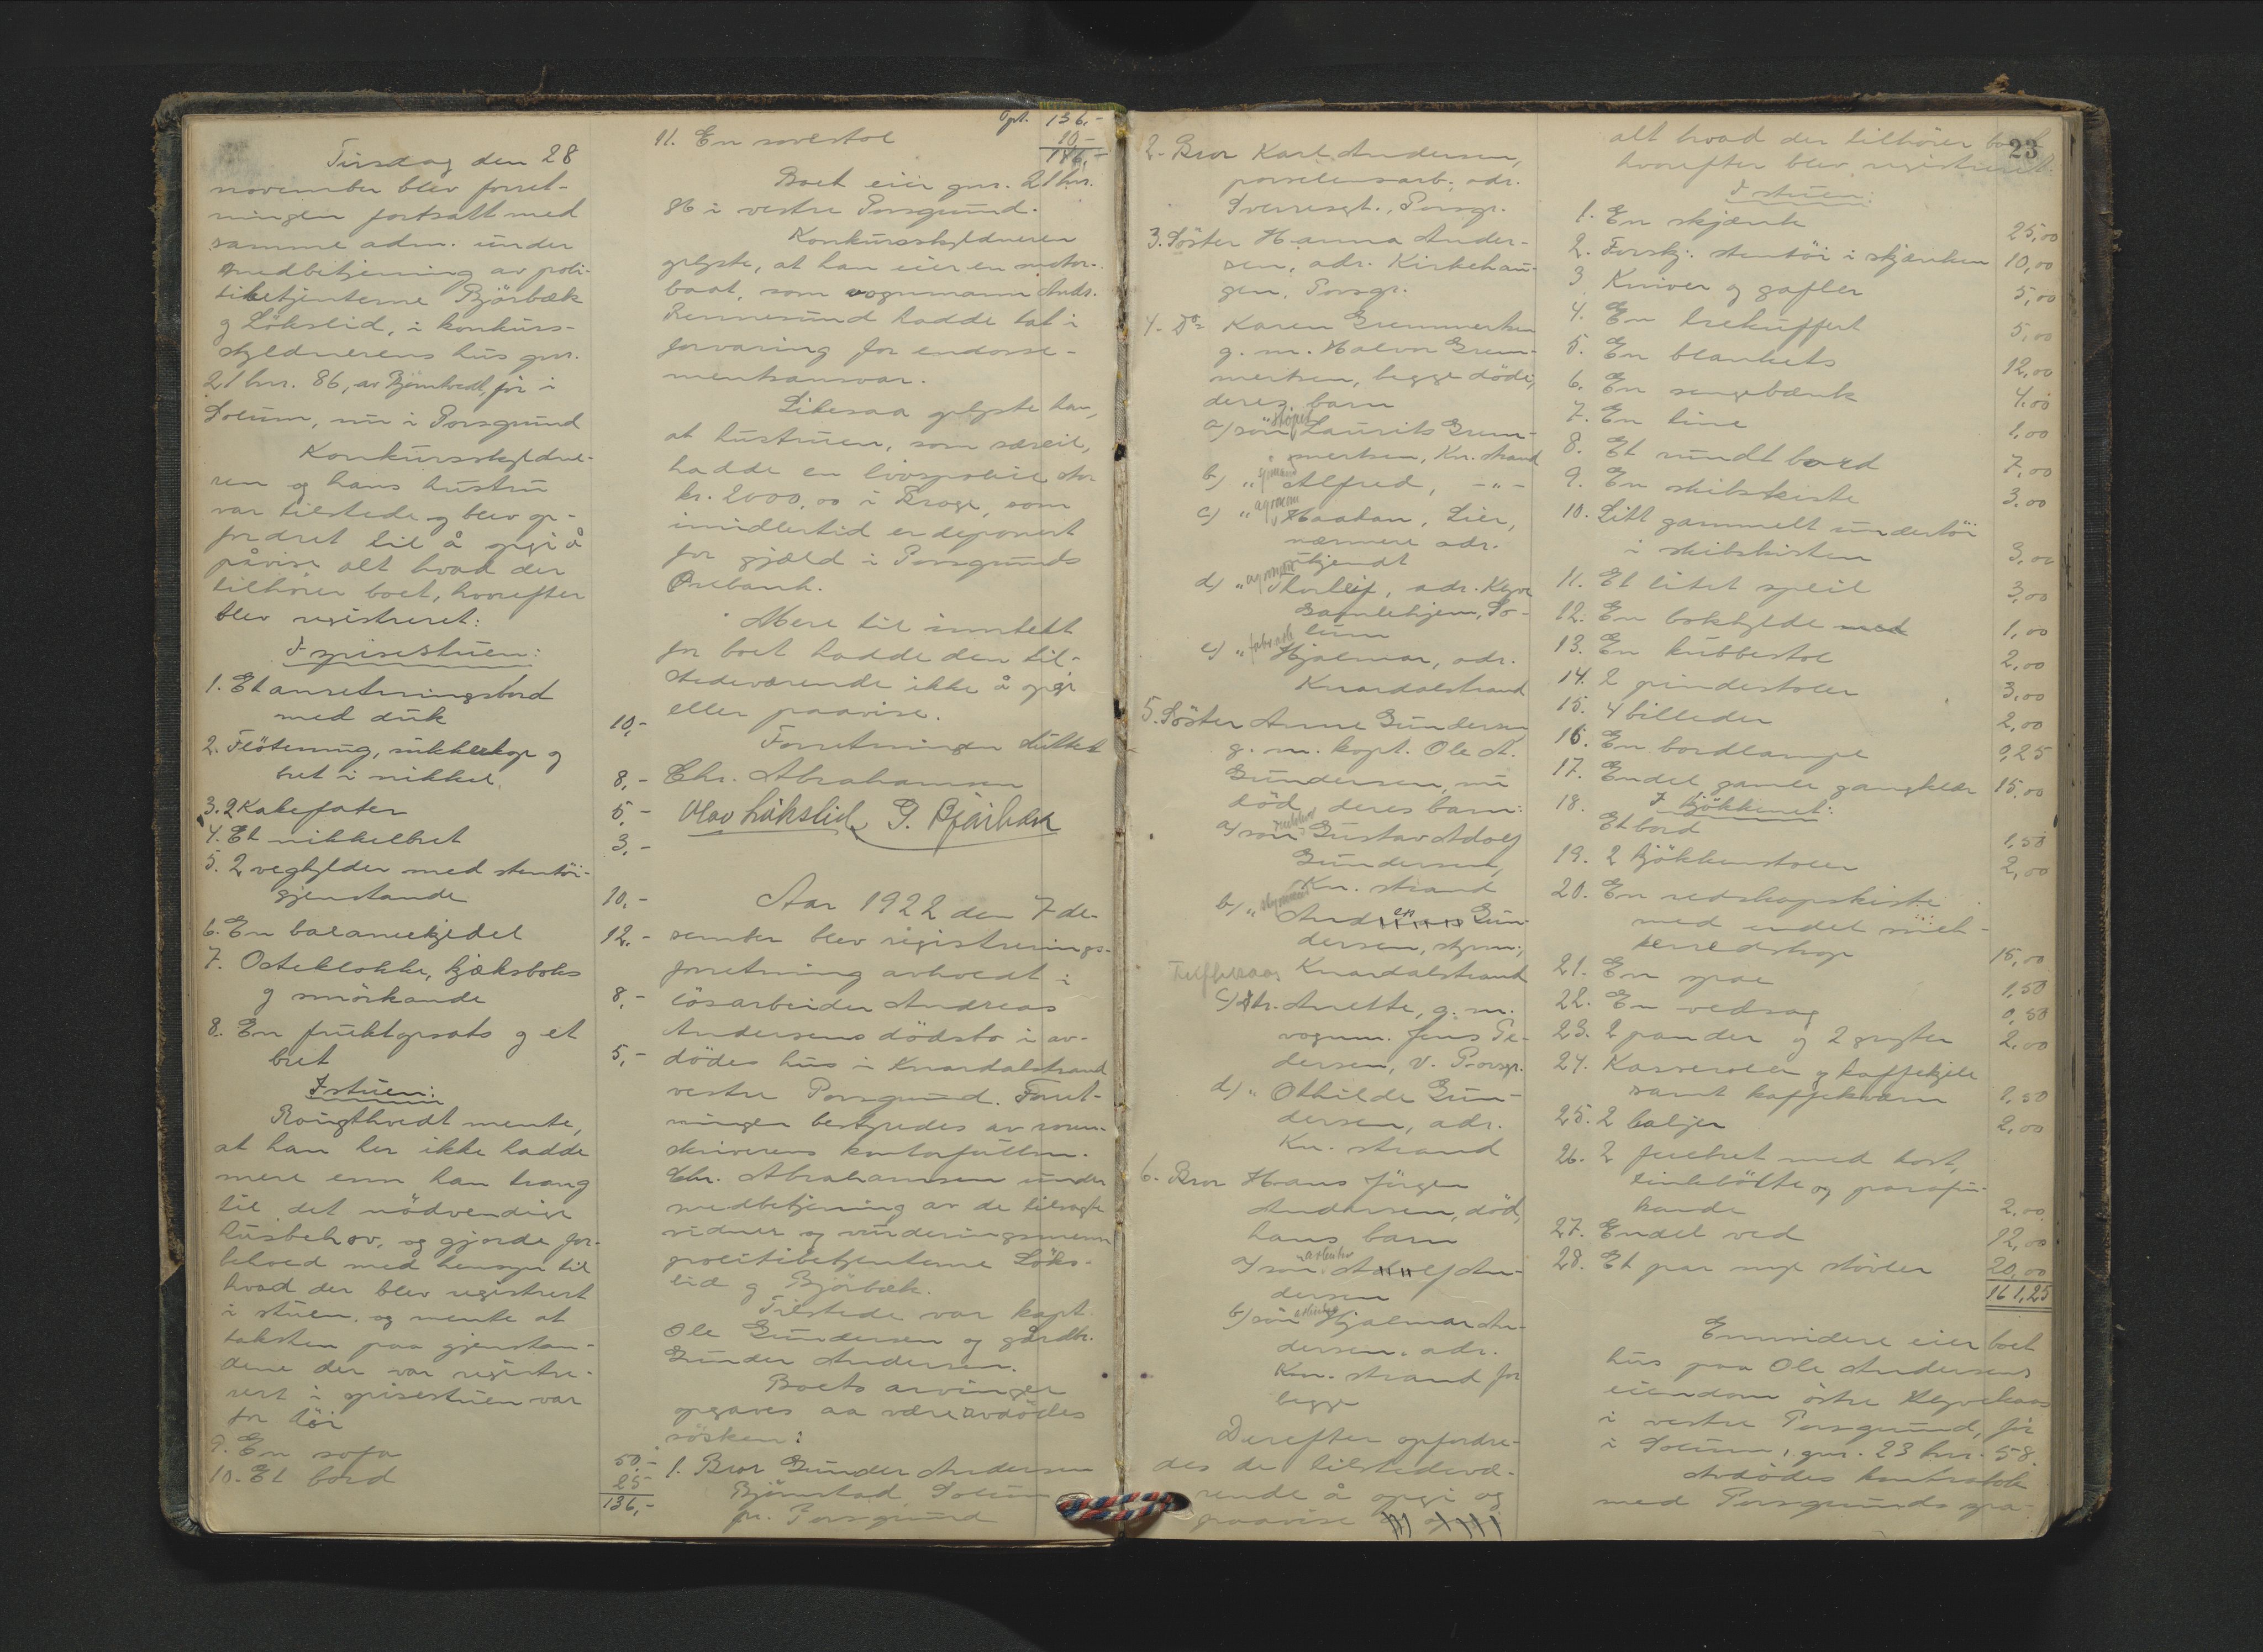 Tirsdag den 28
november blev forret-
ningen fortsatt med
samme adm. under
medbetjening av poli-
tibetjenterne Bjørbæk
og Løkslid, i konkurs-
skyldnerens hus gnr.
21 bnr. 86, av Bjørntvedt, før i
Solum, nu i Porsgrund
Konkursskyldne-
ren og hans hustru
var tilstede og blev op-
fordret til å opgi å
påvise alt hvad der
tilhører boet, hvorefter
blev registreret:
I spisestuen:
1. Et anretningsbord
med duk 10,-
2. Fløtemug, sukkerkop og
bret i nikkel 8,-
3. 2 Kakefater 5,-
4. Et nikkelbret 3,-
5. 2 veghylder med stentøi-
gjenstande 10,-
6. En balancekjedel 12,-
7. Osteklokke, kjæksboks
og smørkande 8,-
8. En fruktopsats og et
bret 5,-
I stuen:
mente,
at han her ikke hadde
mere enn han trang
til det nødvendige
husbehov, og gjorde for-
behold med hensyn til
hvad der blev registrert
i stuen, og mente at
taksten paa gjenstan-
dene der var registre-
rert i spisestuen var
for høi
9. En sofa 50,-
10. Et bord 25
136,-
Opt. 136,-
11. En sovestol 10-
146,-
Boet eier gnr. 21 bnr.
86 i vestre Porsgrund.
Konkursskyldneren
oplyste, at han eier en motor-
baat, som vognmann Andr.
hadde tat i
forvaring for endosse-
mentsansvar.
Likesaa oplyste han,
at hustruen, som særeie,
hadde en livspolice stor
kr. 2000,00 i som
imidlertid er deponert
for gjæld i Porsgrunds
Privatbank.
Mere til inntekt
for boet hadde den til-
stedeværende ikke å opgi
eller paavise.
Forretningen sluttet
Chr. Abrahamsen
Olav Løkslid G. Bjørbæk
Aar 1922 den 7 de-
sember blev registrerings-
forretning avholdt i
løsarbeider Andreas
Andersens dødsbo i av-
dødes hus i Knardalstrand
vestre Porsgrund. Forret-
ningen bestyredes av soren-
skriverens kontorfullm.
Chr. Abrahamsen under
medbetjening av de tilsagte
vidner og vurderingsmenn
politibetjenterne Løks-
lid og Bjørbæk.
Tilstede var kapt.
Ole Gundersen og gårdbr.
Gunder Andersen.
Boets arvinger
opgaves aa være avdødes
søsken:
1. Bror Gunder Andersen
Bjørnstad, Solum
pr. Porsgrund
2. Bror Karl Andersen,
porselensarb., adr.
Sverresgt., Porsgr.
3. Søster Hanna Ander-
sen, adr. Kirkehau-
gen, Porsgr.
4. Do Karen Gremmertsen
g. m. Halvor Grem-
mertsen, begge døde,
deres barn
a) søn Laurits Grem-
mertsen, Kn. strand
b) " Alfred, -"-
c) " Haakon, Lier,
nærmere adr.
ukjendt
d) " Thorleif, adr. Klyve
Gamlehjem, So-
lum
e) " Hjalmar, adr.
Knardalstrand
5. Søster Anne Gundersen
g. m. kapt. Ole A.
Gundersen, nu
død, deres barn:
a) søn Gustav Adolf
Gundersen,
Kn. strand
b) " Gun-
dersen, styrm.,
Knardalstrand
c) dtr. Anette, g. m.
vognm. Jens Pe-
dersen, V. Porsgr.
d) " Othilde Gun-
dersen, adr.
Kn. strand
6. Bror Hans Jørgen
Andersen, død,
hans barn
a) søn An-
dersen
b) søn Hjalmar An-
dersen, adr.
Kn. strand for
begge
Derefter opfordre-
des de tilstedevæ-
rende å opgi og
paavise
23
alt hvad der tilhører boet
hvorefter blev registreret
I stuen:
1. En skjænk 25,00
2. Forskj. stentøi i skjænken 10,00
3. Kniver og gafler 5,00
4. En trekuffert 5,00
5. En blankets 12,00
6. En sengebænk 4,00
7. En tine 1,00
8. Et rundt bord 7,00
9. En skibskiste 3,00
10. Litt gammelt undertøi
i skibskisten 3,00
11. Et litet speil 3,00
12. En bokhylde 1,00
13. En kubbestol 2,00
14. 2 pindestoler 3,00
15. 4 billeder 2,00
16. En bordlampe 9,25
17. Endel gamle gangklær 15,00
I kjøkkenet:
18. Et bord 1,50
19. 2 kjøkkenstoler 2,00
20. En redskapskiste
med endel snek-
kerredskap 15,00
21. En spae 1,50
22. En vedsag 0,50
23. 2 pander og 2 gryter 2,00
24. Kasseroller og kaffekjele
samt kaffekvern 1,50
25. 2 baljer 2,00
26. 2 feiebret med kost,
sinkbøtte og parafin-
kande 2,00
27. Endel ved 12,00
28. Et par nye støvler 20,00
161,25
Ennvidere eier boet
hus paa Ole Andersens
eiendom østre Klyvekaas
i vestre Porsgrund, før
i Solum, gnr. 23 bnr. 58.
Avdødes kontrabok
med Porsgrunds spa-